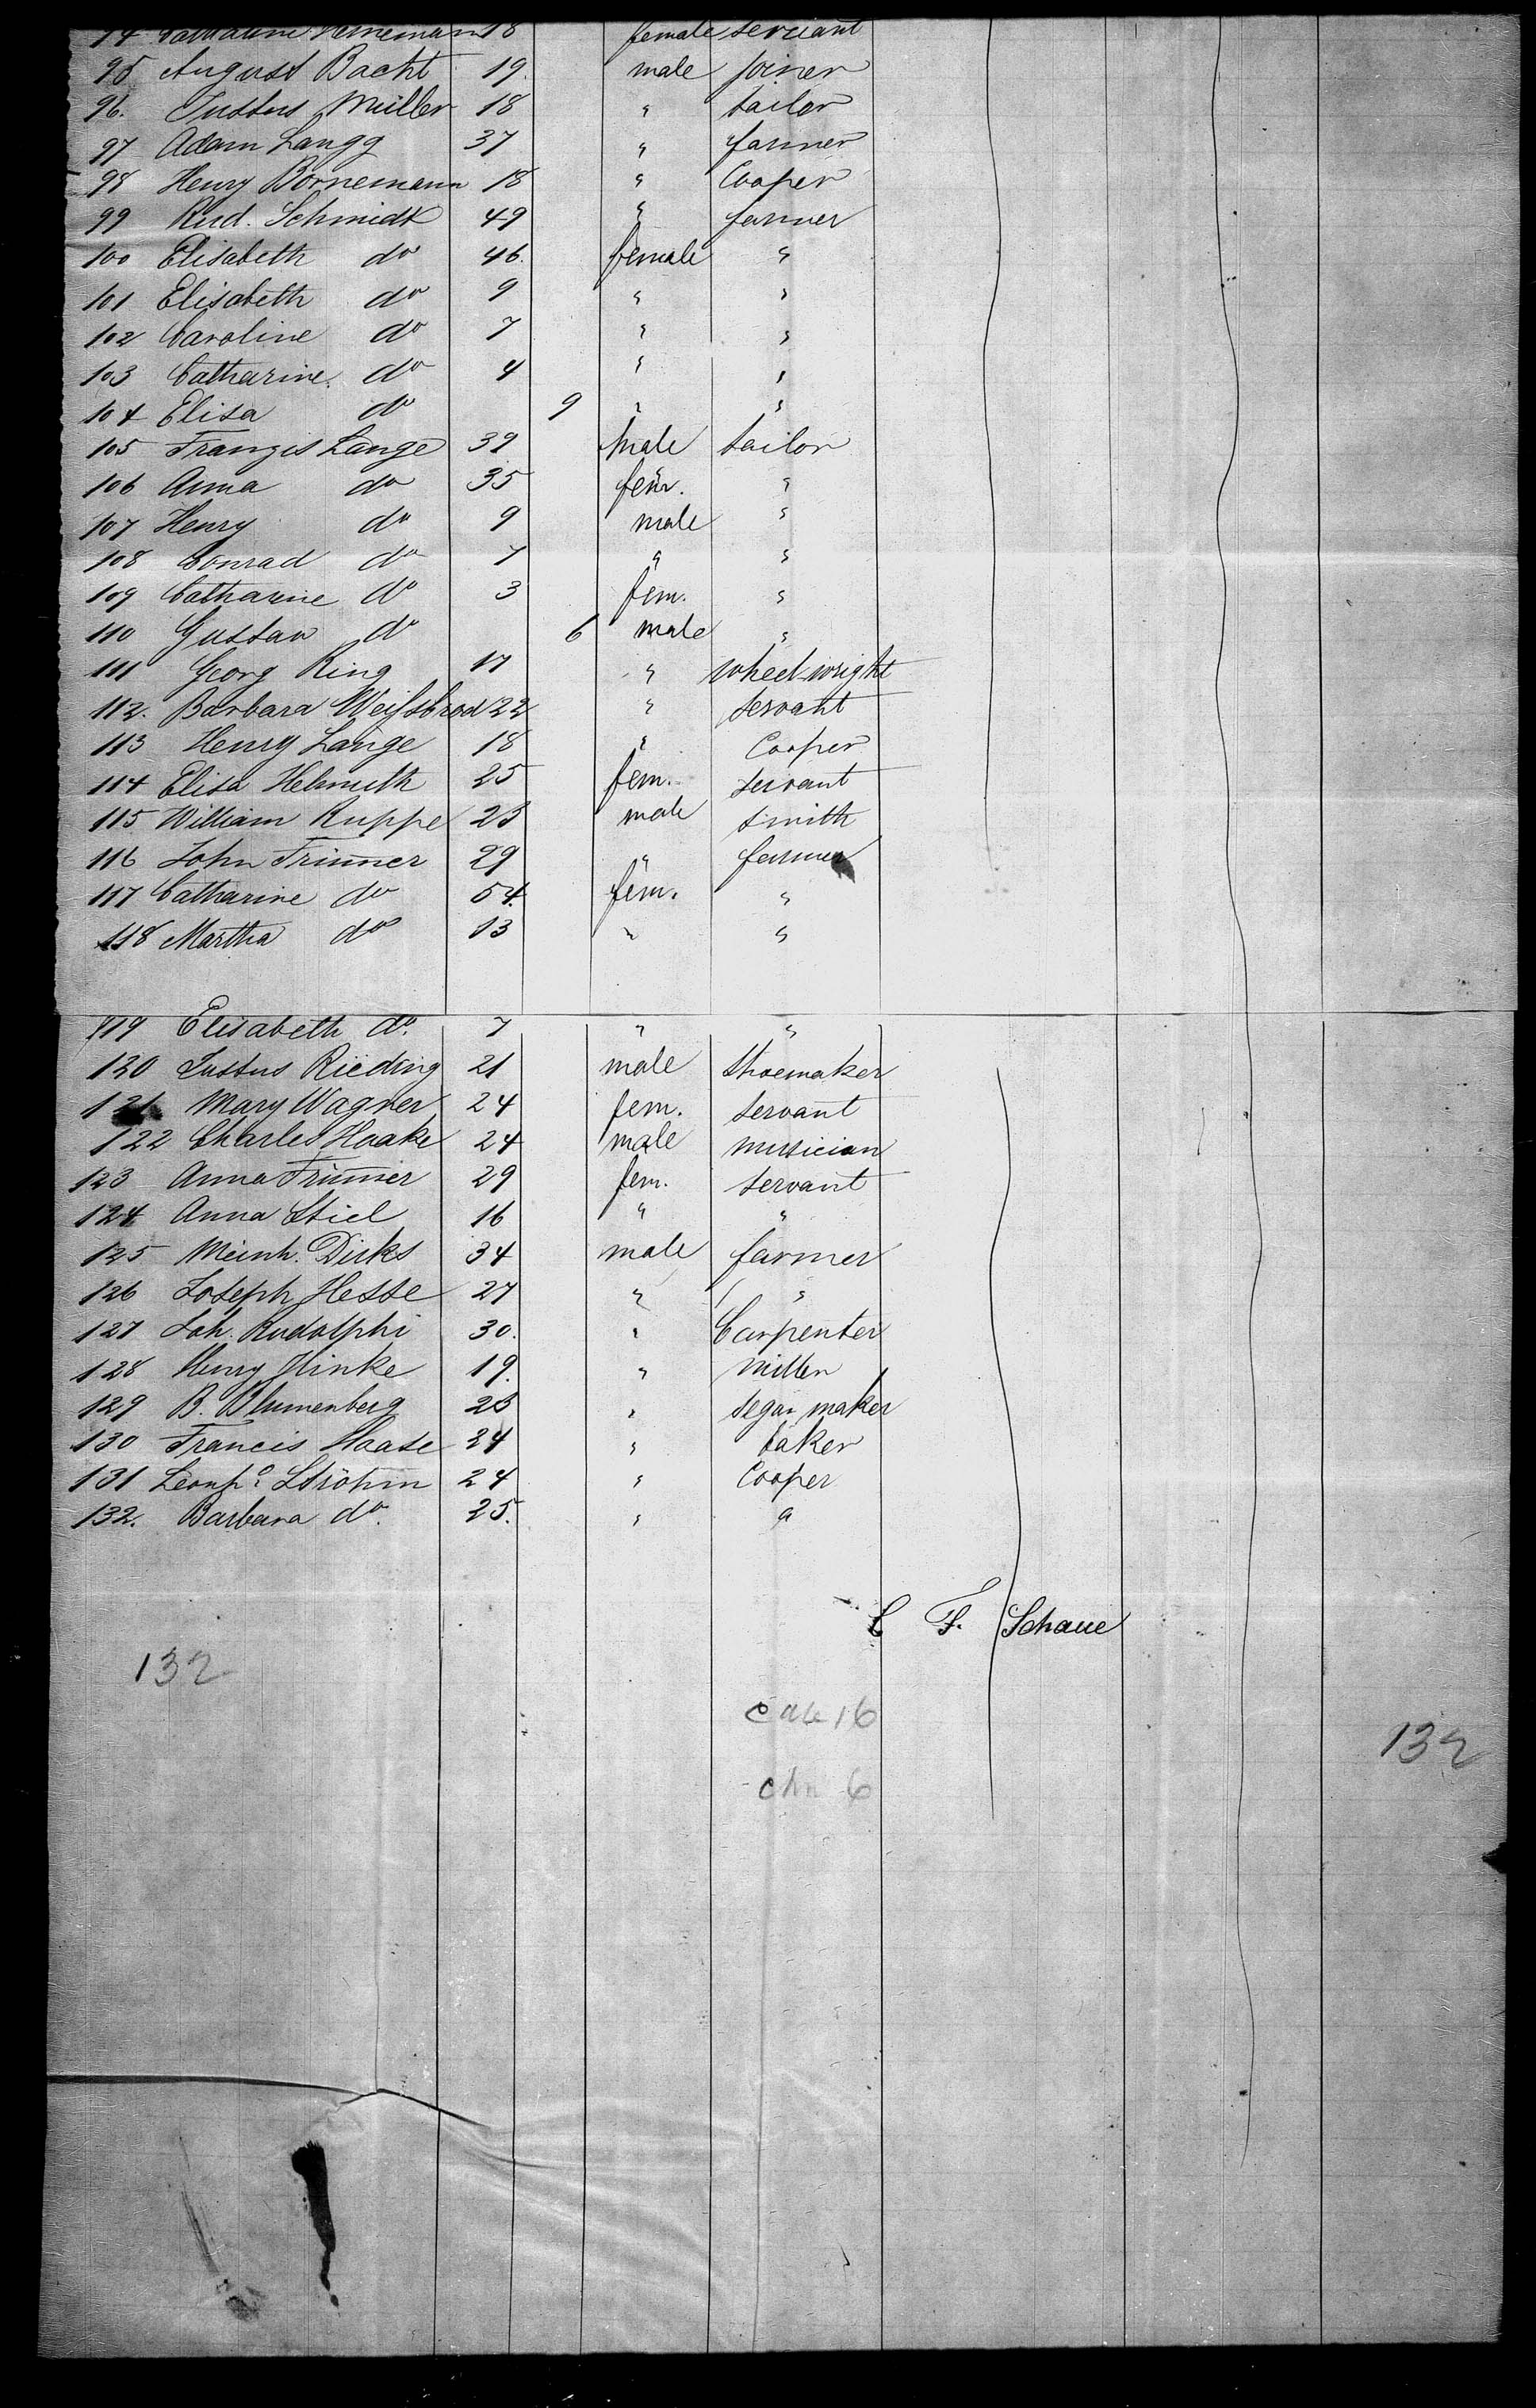 94 Catharine Heinemann 18 female servant
95 August Bacht 19. male joiner
96. Justus Müller 18 " tailor
97 Adam Langg 37 " farmer
98 Henry Bornemann 18 " Cooper
99 Rud. Schmidt 49 " farmer
100 Elisabeth do 46. female "
101 Elisabeth do 9 " "
102 Caroline do 7 " "
103 Catharine. do 4 " "
104 Elisa do 9 " "
105 Franzis Lange 39 Male tailor
106 Anna do 35 fem. "
107 Henry do 9 male "
108 Conrad do 7 " "
109 Catharine do 3 fem. "
110 Gustav do 6 male "
111 Georg Ring 17 " wheel-wright
112. Barbara Weifsbrod 22 " servant
113 Henry Lange 18 " Cooper
114 Elisa Helmuth 25 fem. servant
115 William Ruppe 23 male smith
116 John Trimmer 29 " farmer
117 Catharine do 54. fem. "
118 Martha do 13 " "
119 Elisabeth do. 7 " "
120 Justus Rieding 21 male shoemaker
121 Mary Wagner 24 fem. servant
122 Charles Haake 24 male musician
123 Anna Trimmer 29 fem. servant
124 Anna Stiel 16 " "
125 Meinh. Dirks 34 male farmer
126 Joseph Hesse 27 " "
127 Joh. Rudolphi 30. " Carpenter
128 Henry Hinke 19. " miller
129 B. Blumenberg 23 " segar maker
130 Francis Haase 24 " baker
131 Leonh. Ströhm 24 " Cooper
132. Barbara do. 25. " "
C F. Schaue
132
16
132
6